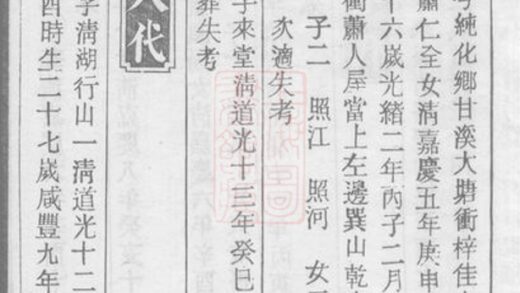 純化鄉甘溪大塘衝梓佳
蕭仁全女淸嘉慶五年庚申
十六嵗光緒二年丙子二月
衝蕭人屋當上左邊巽山乾
子二 照江 照河 女
次適失考
子來堂淸道光十三年癸巳
葬失考
代
字淸湖行山一淸道光十二
酉時生二十七嵗咸豐九年